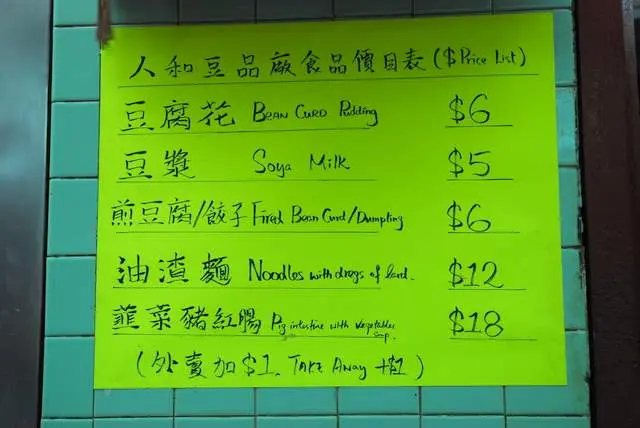 人和豆品廠食品價目表 ($ Price List)
豆腐花 Bean Curd Pudding $6
豆漿 Soya Milk $5
煎豆腐/餃子 Fired Bean Curd/Dumpling $6
油渣麵 Noodles with dregs of lard. $12
韮菜豬紅腸 Pig intestine with vegetables $18
(外賣加$1. Take Away +$1)